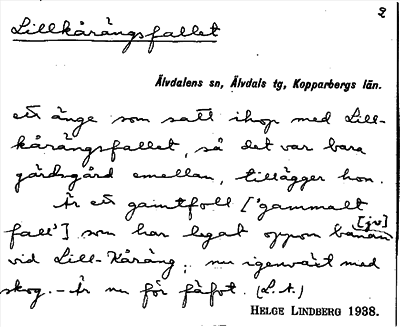 2
Lillkårängsfallet
Älvdalens sn, Älvdals tg, Kopparbergs län.
ett änge som satt ihop med Lill-
kårängsfallet, så det var bara
gärdsgård emellan, tillägger hon.
Är ett gamtfoll ['gammalt
fall'] som har legat oppon
vid Lill-Kåräng; nu igenväxt med
skog. - Är nu för fäfot. (L.A.)
HELGE LINDBERG 1938.